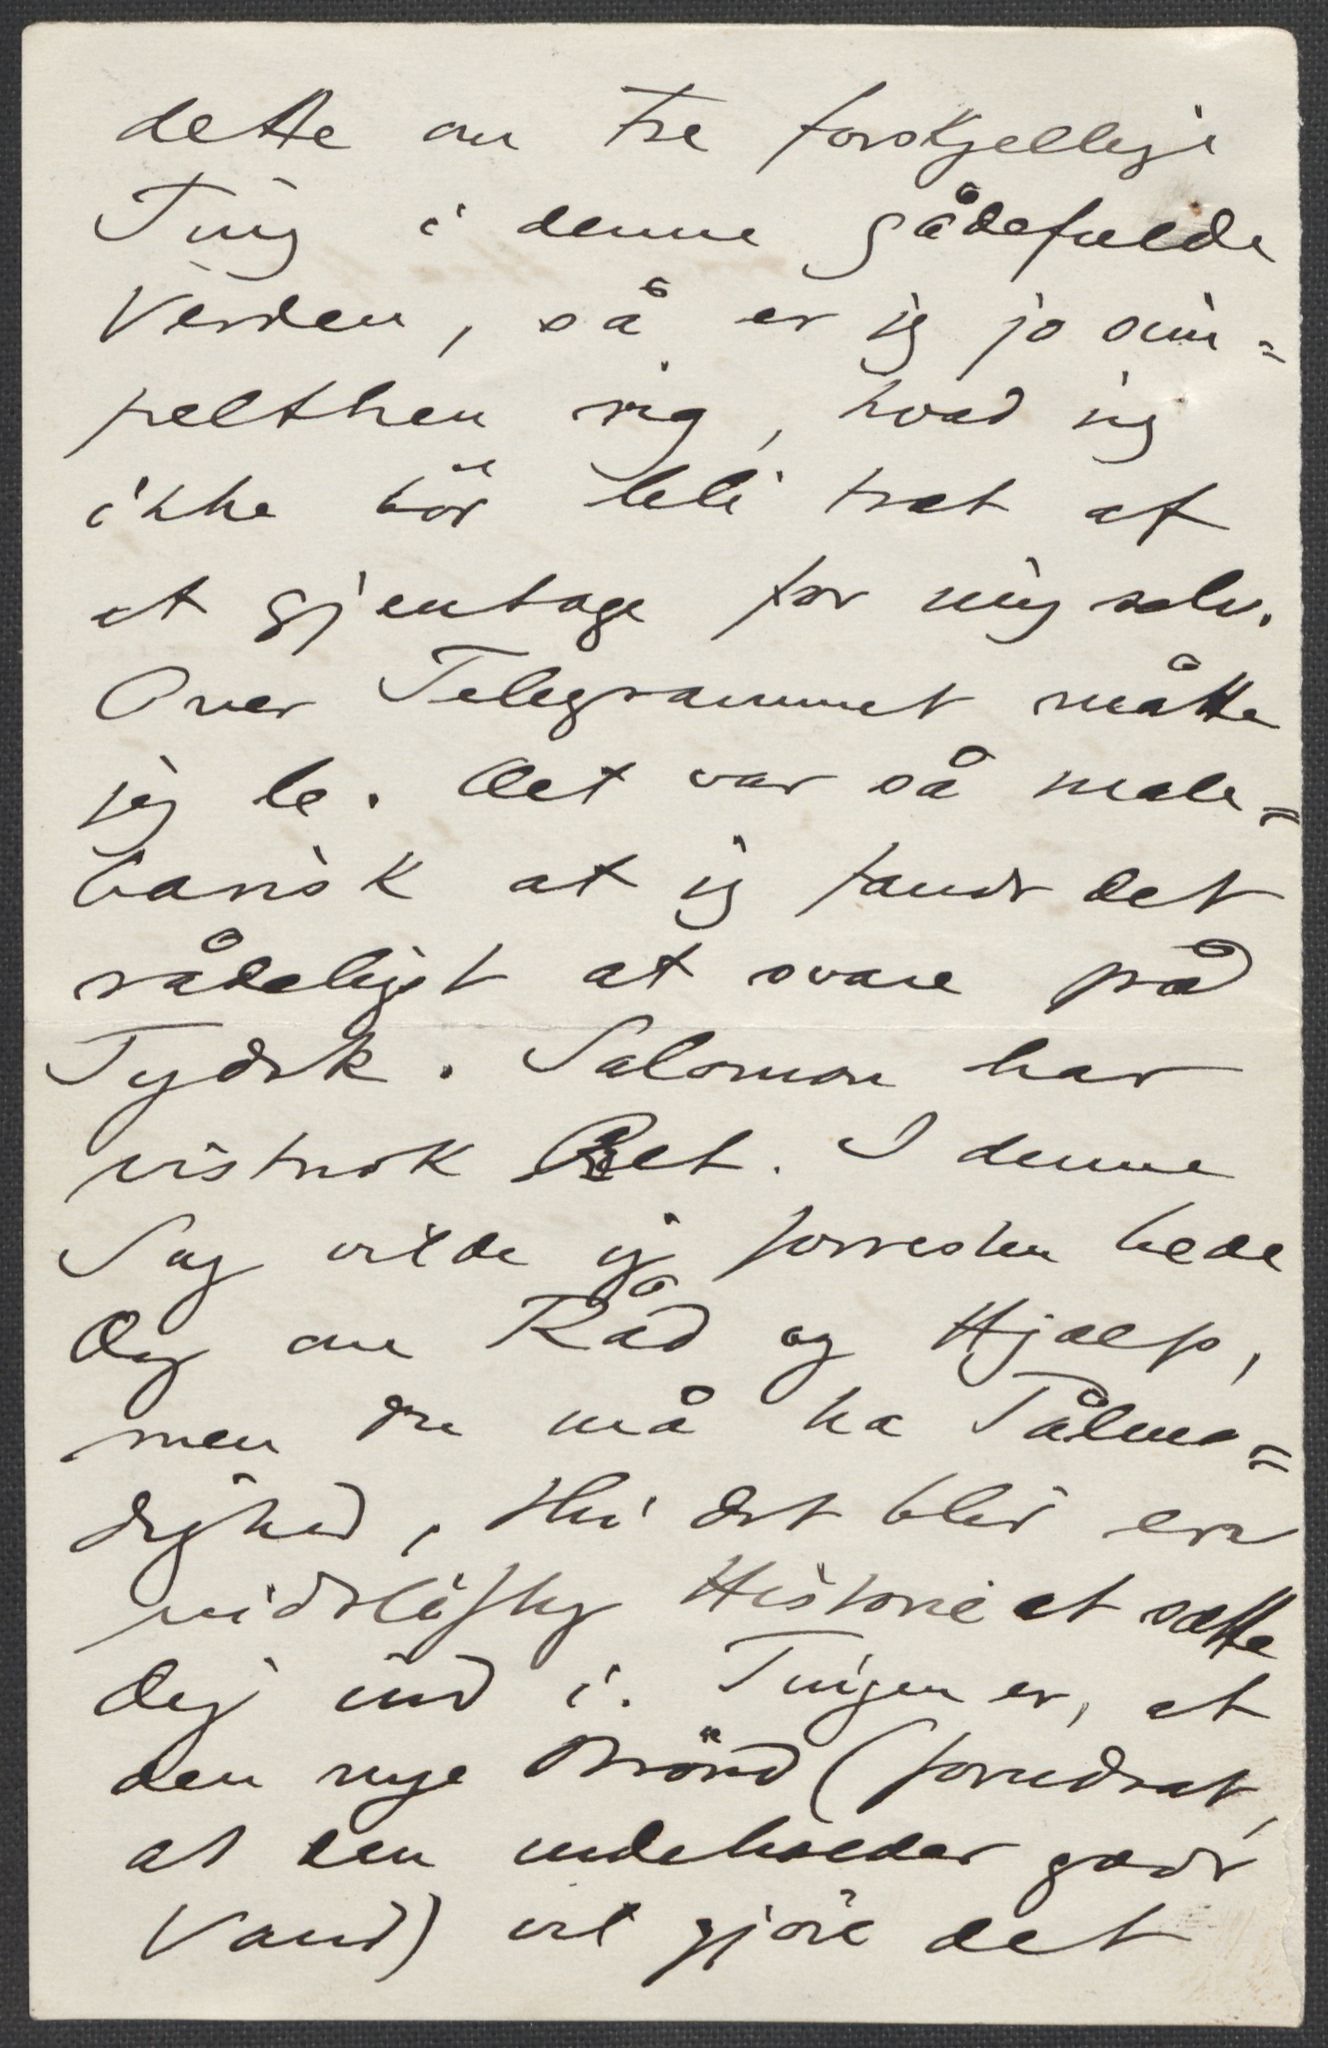 dette om tre forskjellige
Ting i denne gådefulde
Verden, så er jeg jo sim=
pelthen rig, hvad jeg
ikke bör bli træt af
at gjentage for mig selv.
Over Telegrammet måtte
jeg le. Det var så mala=
barisk at jeg fandt det
rådeligst at svare på
Tydsk. Salomon har
vistnok Ret. I denne
Sag vilde jeg forresten bede
Dig om Råd og Hjælp,
men Du må ha Tålmo=
dighed, thi det blir en
vidtlöftig Historie at sætte
Dig ind i. Tingen er, at
den nye Brönd (forudsat,
at den indeholder godt
Vand) vil gjöre det